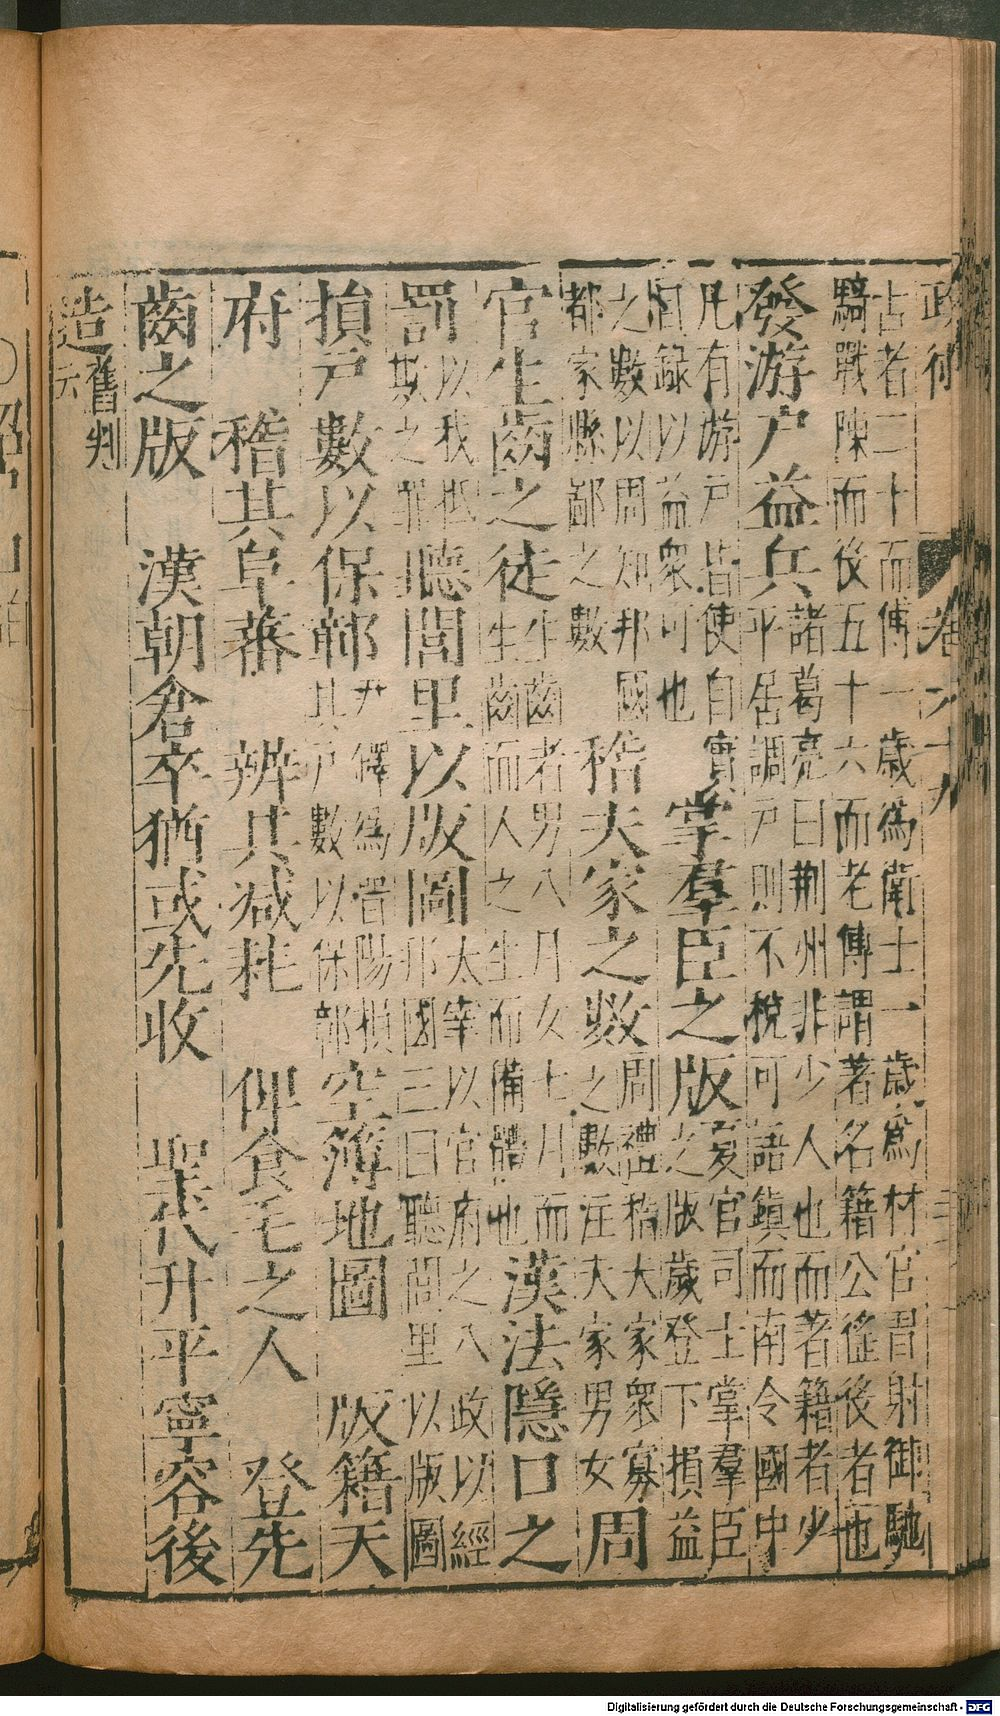 政何
卷六十九
占者二十而傅一歲爲衛士一歲爲材官習射御馳
騎戰陳而後五十六而老傅謂著名籍公徭後者也
發游户益兵
諸葛亮曰荆州非少人也而著籍者少
平居調户則不稅可語鎮而南令國中
凡有游户皆使自實
因録以益衆可也
掌羣臣之版
夏官司士掌羣臣
之版歲登下損益
之數以周知邦國
都家縣鄙之數
稽夫家之數
周禮稽夫家衆寡
之數注夫家男女
周
官生齒之徒
生齒者男八月女七月而
生齒而人之生而備體也
漢法隱口之
罰
以我抵
欺之罪
聽閭里以版圖
太宰以官府之八政以經
邦國三曰聽閭里以版圖
損户數以保鄣
尹鐸爲晋陽損
其户數以保鄣
空簿地圖 版籍天
府 稽其阜蕃 辨其减耗 俾食毛之人 登先
齒之版 漢朝倉卒猶或先收 聖代升平寧容後
造
舊判
云
Digitalisierung gefördert durch die Deutsche Forschungsgemeinschaft - DFG